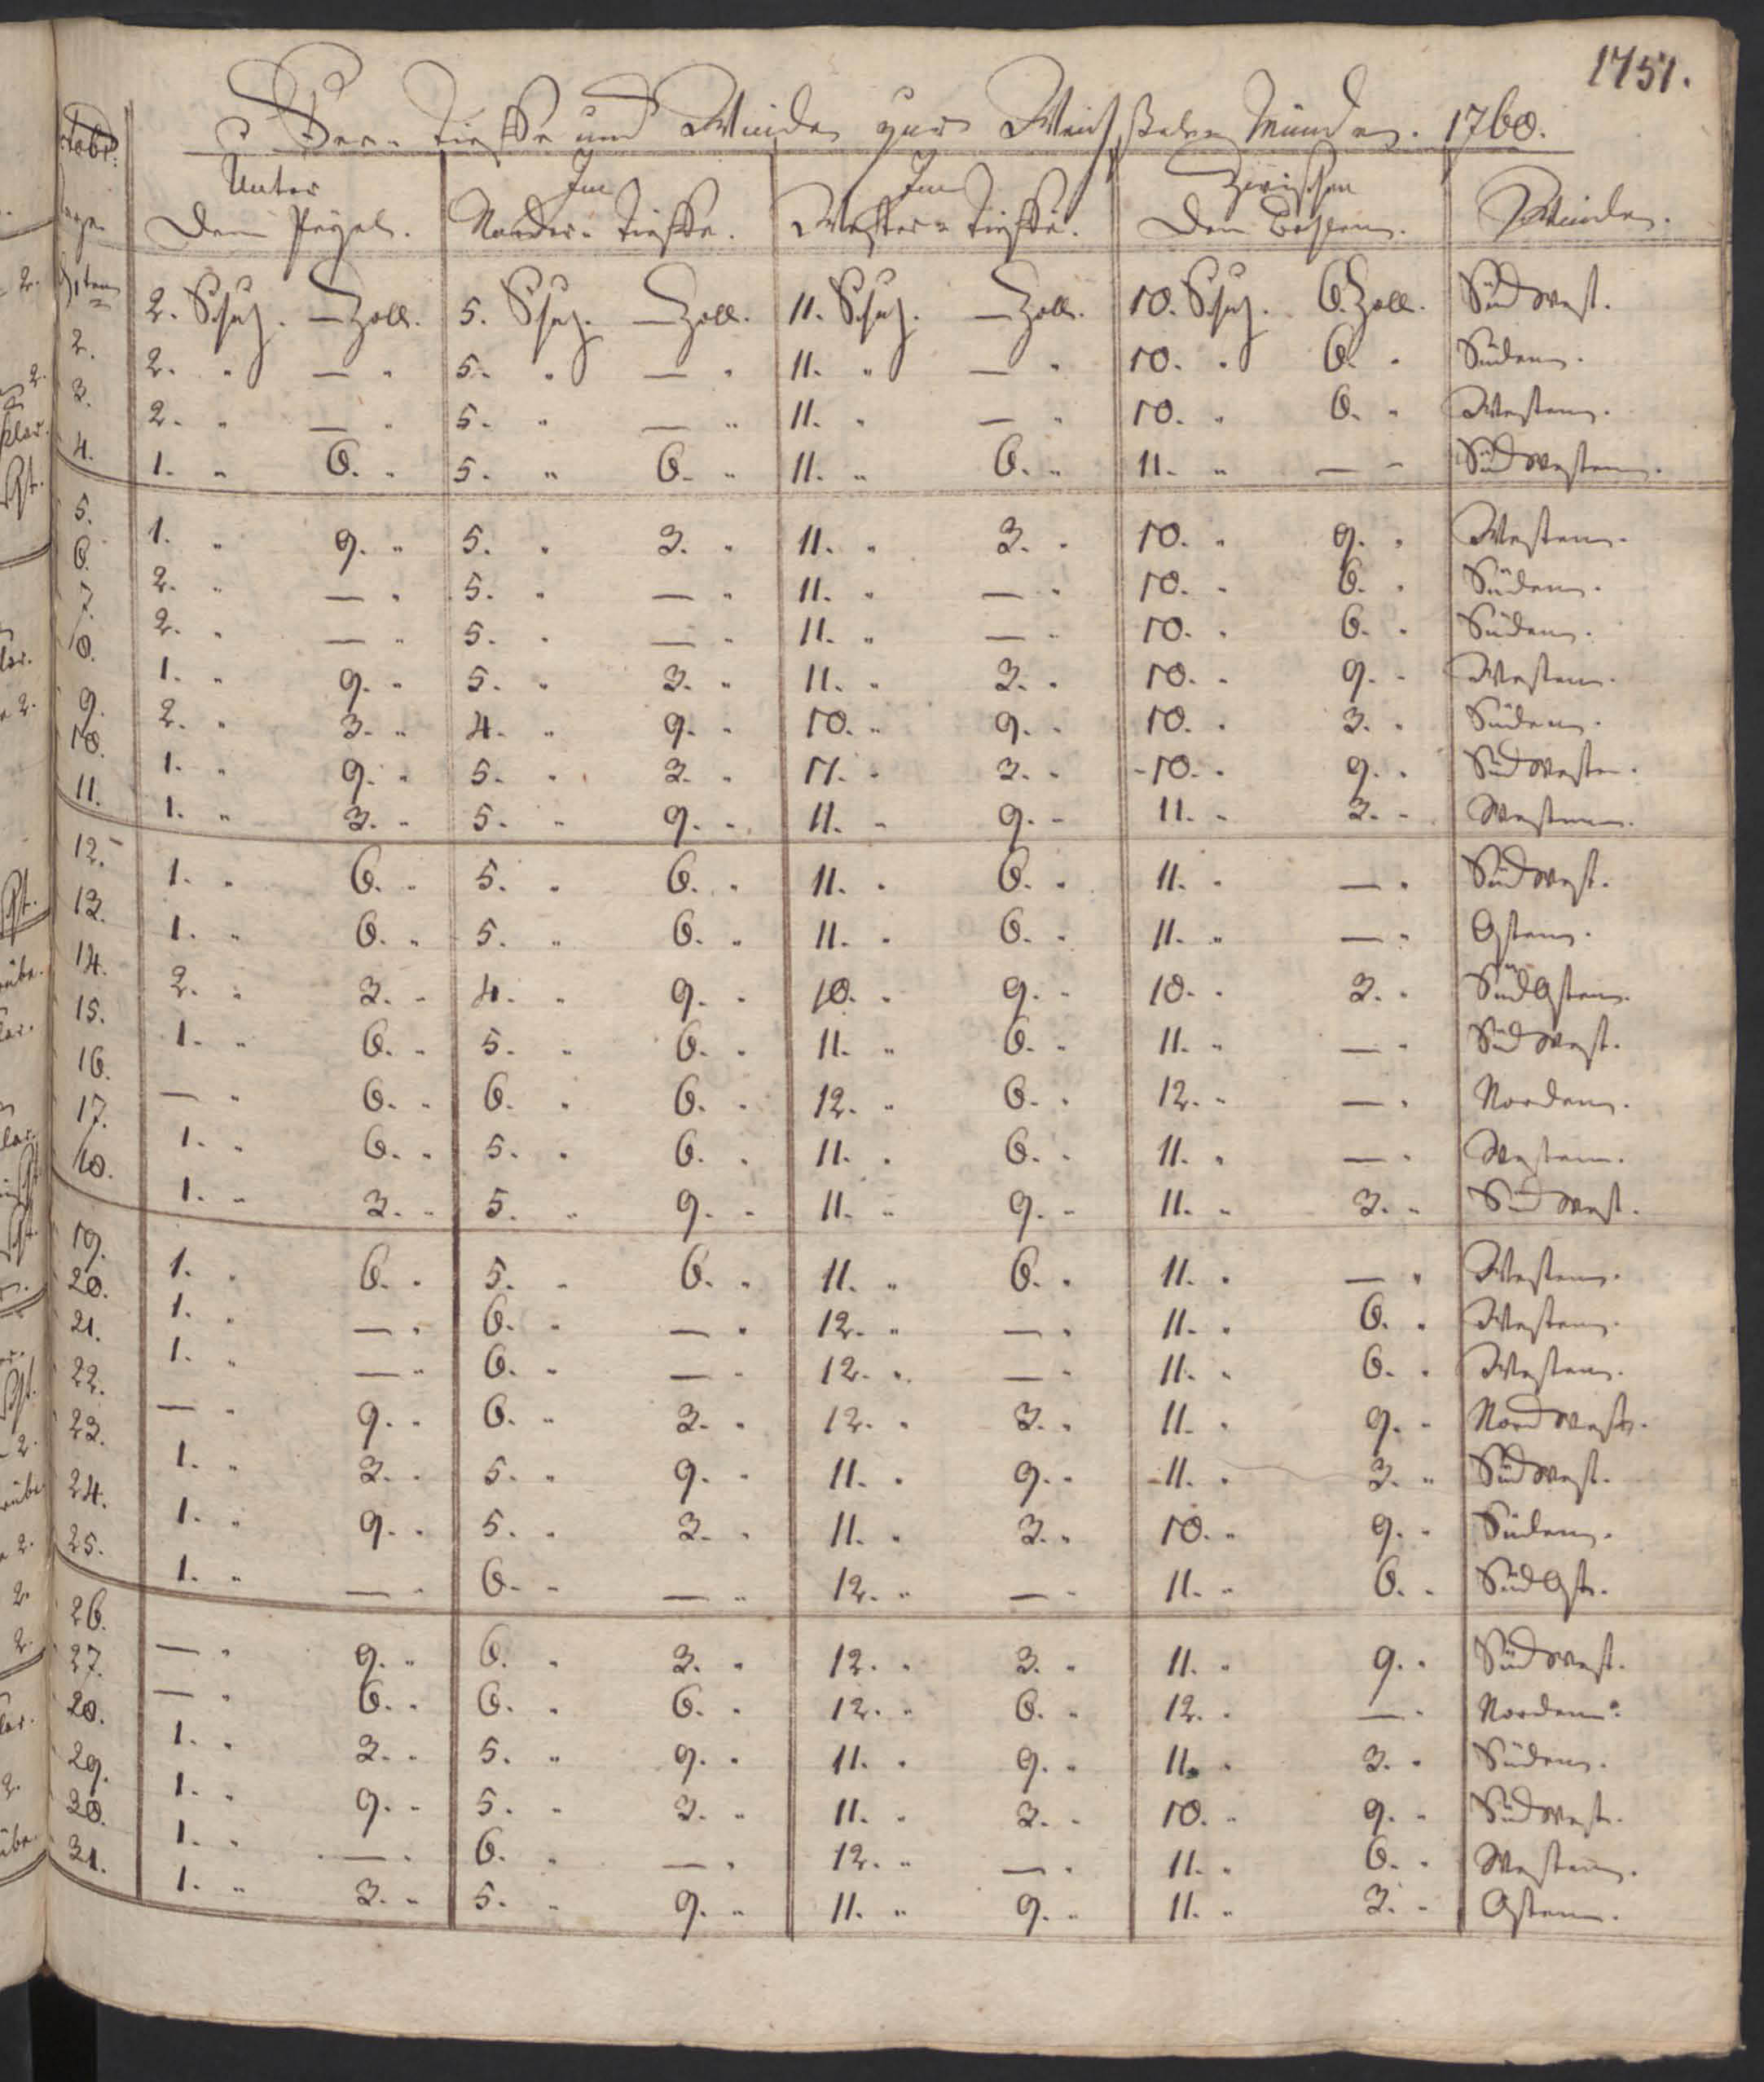 1751.
Tieffe und Winde zur Weichselmünde. 1760.
Octobr:
Unter Dem Pegel. Im Norder-Tieffe. Im Wester-Tieffe. Zwischen Den Bohlen. Winde.
1ten 2. Schuh. — Zoll. 5. Schuh. — Zoll. 11. Schuh. — Zoll. 10. Schuh. 6. Zoll. Südwest.
2. 2. " — " 5. " — " 11. " — " 10. " 6. " Süden.
3. 2. " — " 5. " — " 11. " — " 10. " 6. " Westen.
4. 1. " 6. " 5. " 6. " 11. " 6. " 11. " — " Südwesten.
5. 1. " 9. " 5. " 3. " 11. " 3. " 10. " 9. " Westen.
6. 2. " — " 5. " — " 11. " — " 10. " 6. " Süden.
7. 2. " — " 5. " — " 11. " — " 10. " 6. " Süden.
8. 1. " 9. " 5. " 3. " 11. " 3. " 10. " 9. " Westen.
9. 2. " 3. " 4. " 9. " 10. " 9. " 10. " 3. " Süden.
10. 1. " 9. " 5. " 3. " 11. " 3. " 10. " 9. " Südwesten.
11. 1. " 3. " 5. " 9. " 11. " 9. " 11. " 3. " Westen.
12. 1. " 6. " 5. " 6. " 11. " 6. " 11. " — " Südwest.
13. 1. " 6. " 5. " 6. " 11. " 6. " 11. " — " Osten.
14. 2. " 3. " 4. " 9. " 10. " 9. " 10. " 3. " SüdOsten.
15. 1. " 6. " 5. " 6. " 11. " 6. " 11. " — " Südwest.
16. — " 6. " 6. " 6. " 12. " 6. " 12. " — " Norden.
17. 1. " 6. " 5. " 6. " 11. " 6. " 11. " — " Westen.
18. 1. " 3. " 5. " 9. " 11. " 9. " 11. " 3. " Südwest.
19. 1. " 6. " 5. " 6. " 11. " 6. " 11. " — " Westen.
20. 1. " — " 6. " — " 12. " — " 11. " 6. " Westen.
21. 1. " — " 6. " — " 12. " — " 11. " 6. " Westen.
22. — " 9. " 6. " 3. " 12. " 3. " 11. " 9. " Nordwest.
23. 1. " 3. " 5. " 9. " 11. " 9. " 11. " 3. " Südwest.
24. 1. " 9. " 5. " 3. " 11. " 3. " 10. " 9. " Süden.
25. 1. " — " 6. " — " 12. " — " 11. " 6. " SüdOst.
26. — " 9. " 6. " 3. " 12. " 3. " 11. " 9. " Südwest.
27. — " 6. " 6. " 6. " 12. " 6. " 12. " — " Norden.
28. 1. " 3. " 5. " 9. " 11. " 9. " 11. " 3. " Süden.
29. 1. " 9. " 5. " 3. " 11. " 3. " 10. " 9. " Südwest.
30. 1. " — " 6. " — " 12. " — " 11. " 6. " Westen.
31. 1. " 3. " 5. " 9. " 11. " 9. " 11. " 3. " Osten.